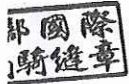 部國際
騎縫章